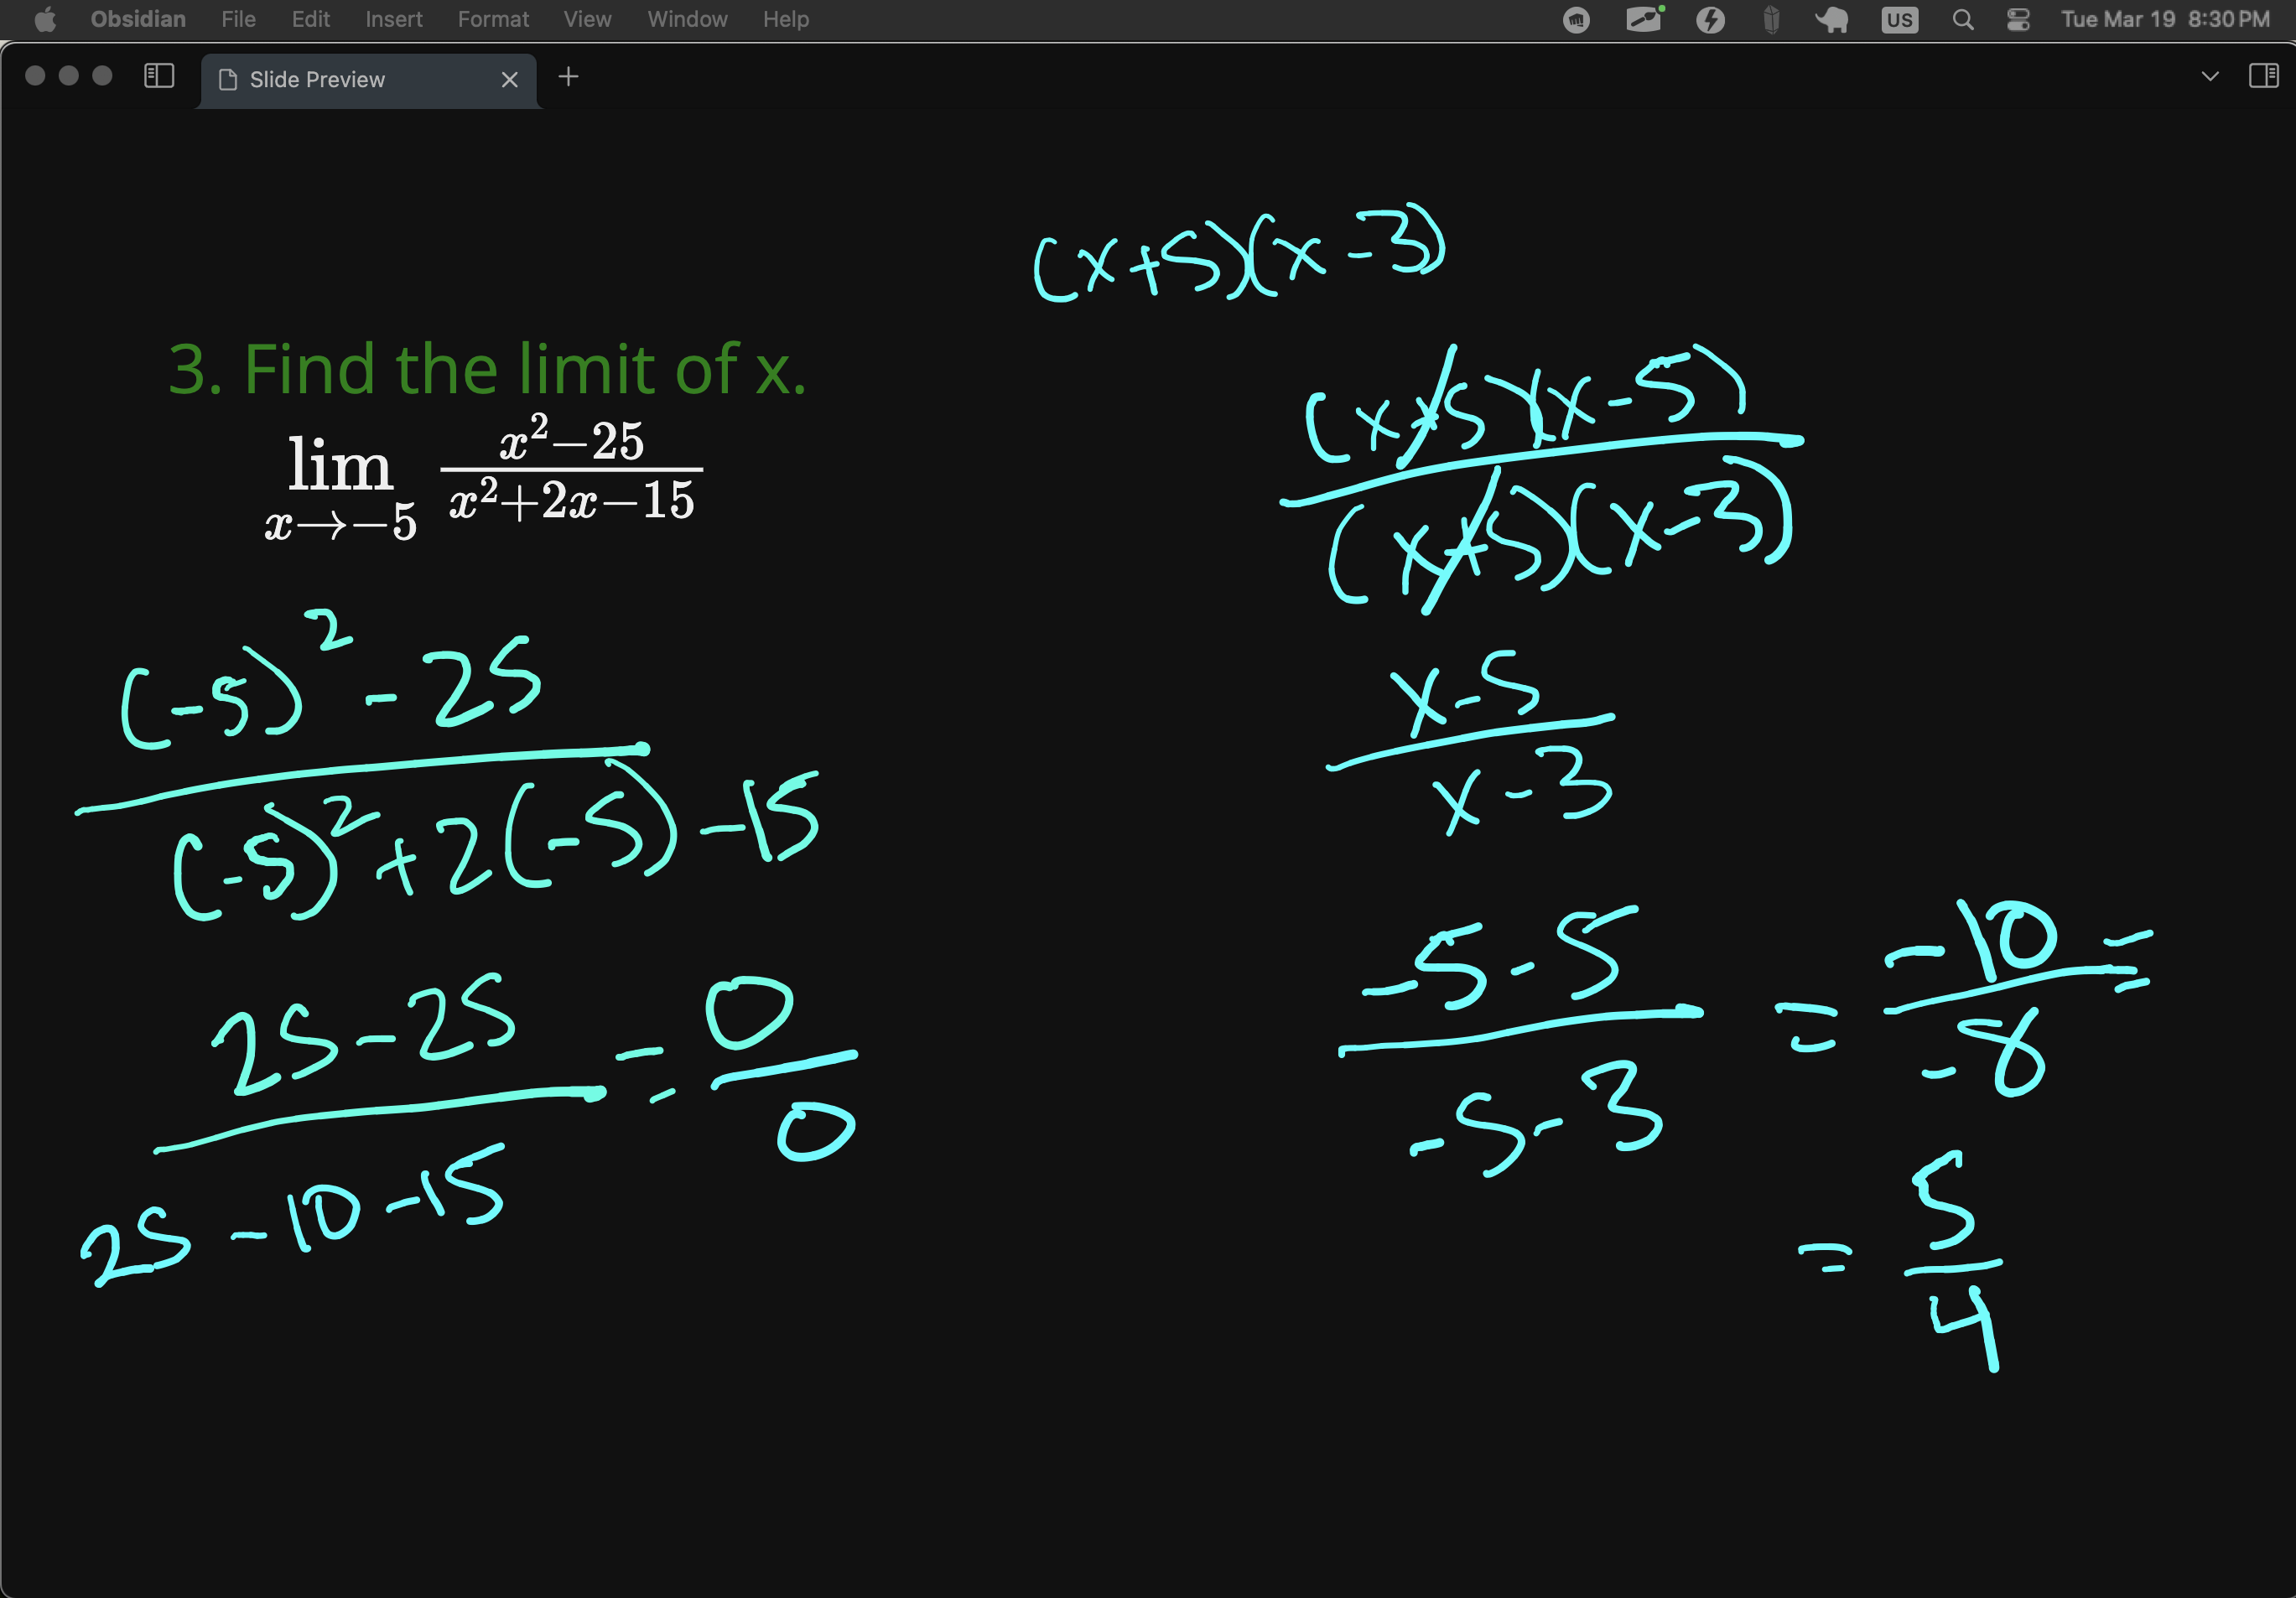 Obsidian File Edit Insert Format View Window Help US Tue Mar 19 8:30 PM
Slide Preview
(x+5)(x-3)
3. Find the limit of x.
lim x→−5 x²−25 / x²+2x−15
(-5)² - 25
(-5)² + 2(-5) - 15
25 - 25 = 0
25 - 10 - 15 0
(x+5)(x-5)
(x+5)(x-3)
x-5
x-3
-5-5 = -10 =
-5-3 -8
= 5
4